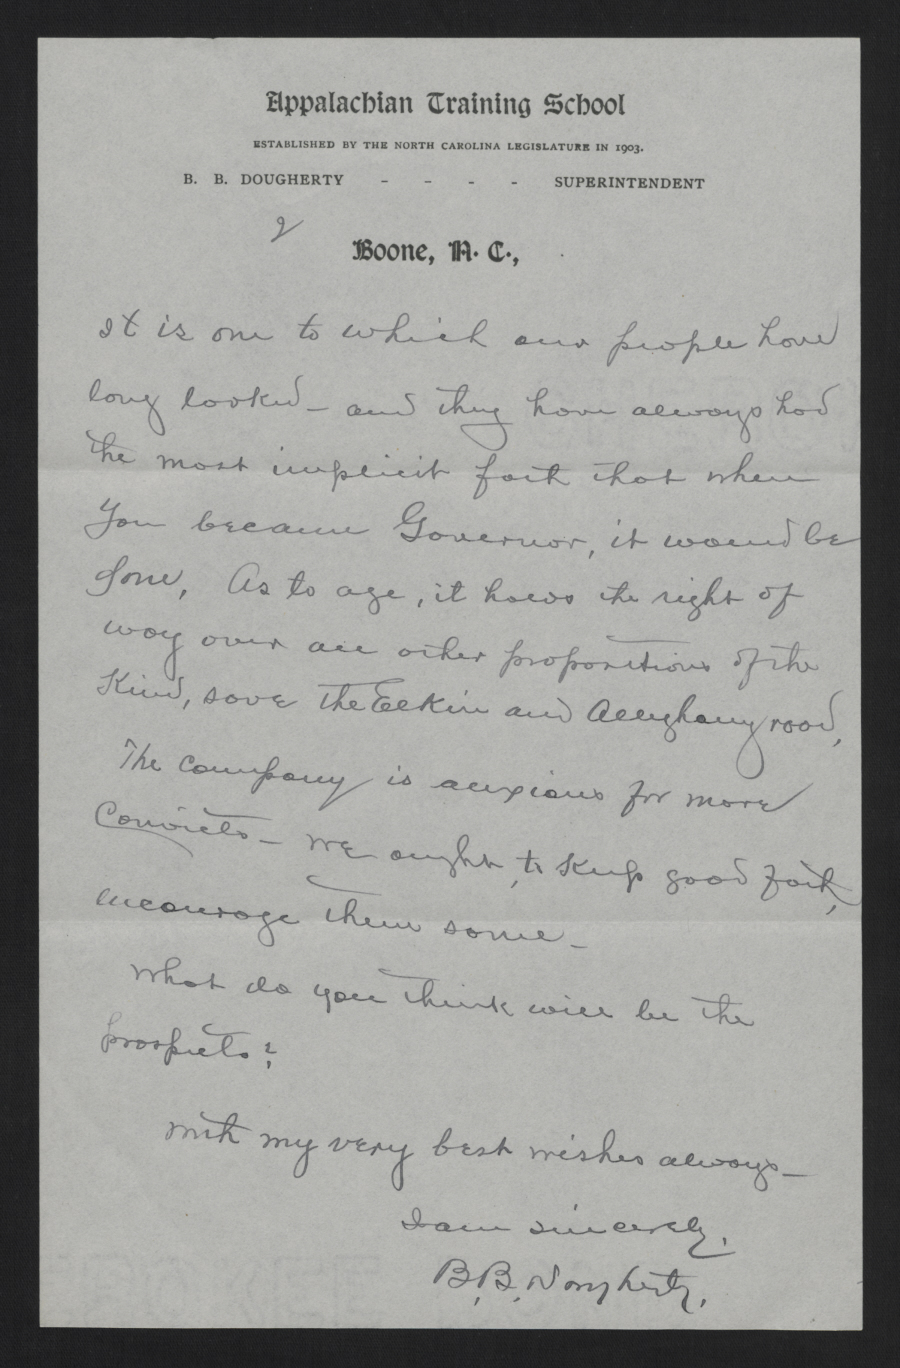 Appalachian Training School
ESTABLISHED BY THE NORTH CAROLINA LEGISLATURE IN 1903.
B. B. DOUGHERTY - - - - SUPERINTENDENT
2
Boone, N. C.,
It is one to which our people have
long looked – and they have always had
the most implicit faith that when
You became Governor, it would be
done, As to age, it has the right of
way over all other propositions of the
Kind, save the Elkin and Alleghany road,
The company is anxious for more
Convicts – We ought, to keep good faith,
encourage them some –
What do you think will be the
prospects?
With my very best wishes always –
I am sincerely,
B. B. Dougherty,